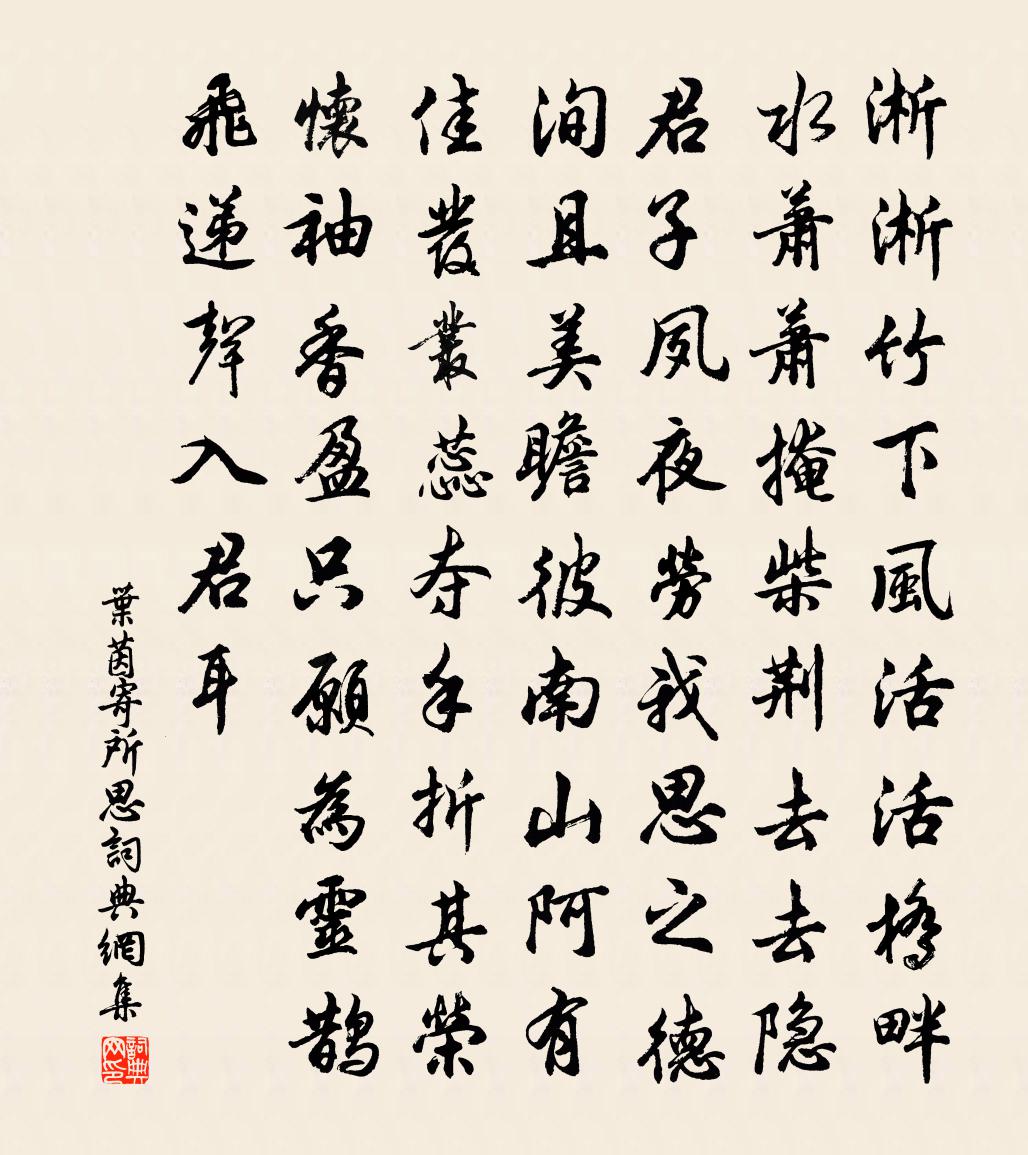 淅淅竹下風活活橋畔
水蕭蕭掩柴荆去去隐
君子夙夜勞我思之德
洵且美瞻彼南山阿有
佳叢叢蕊夺手折其榮
懷袖香盈只願為靈鹊
飛遞聲入君耳
葉茵寄所思詞典網集
詞典网印